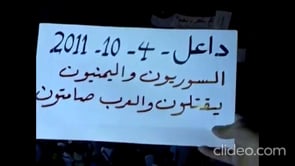 داعل - 4 - 10 - 2011
السوريون واليمنيون
يقتلون والعرب صامتون
clideo.com